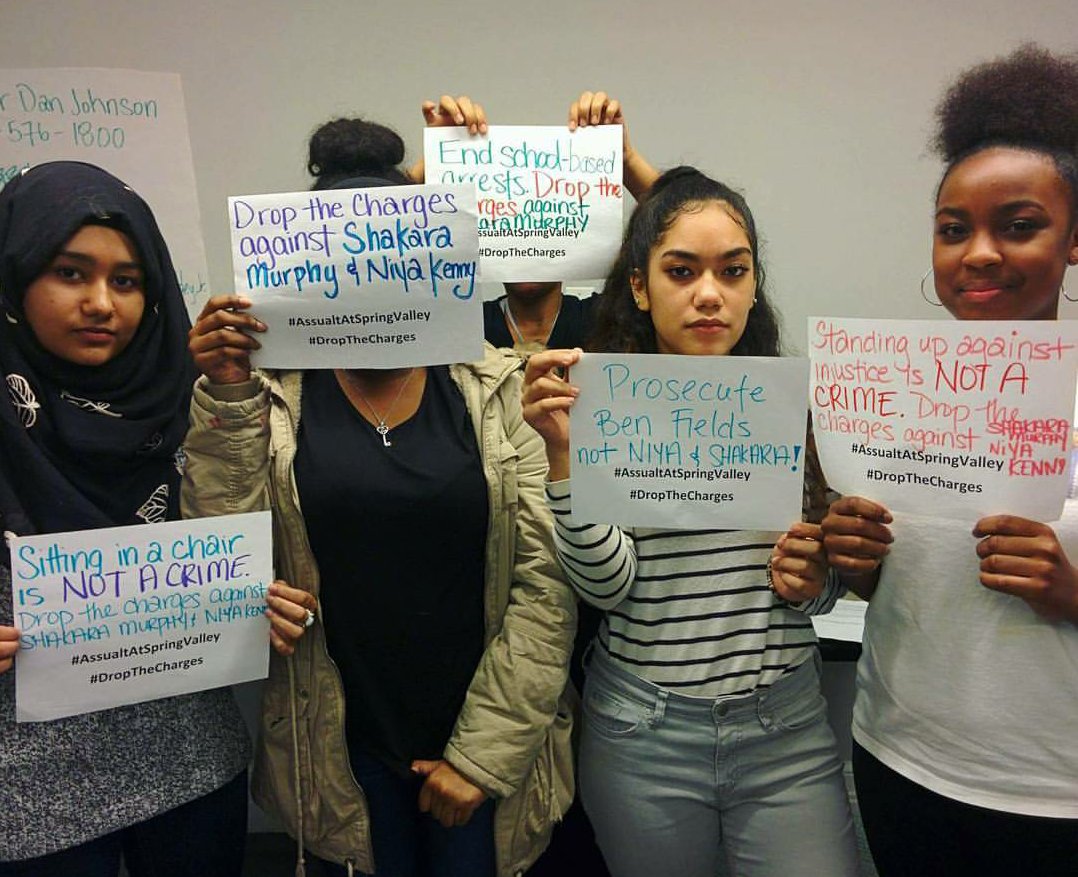 r Dan Johnson
576-1800
Drop the Charges
against Shakara
Murphy & Niya Kenny
#AssualtAtSpringValley
#DropTheCharges
End school-based
arrests. Drop the
rges against
ara MURPHY
ssualtAtSpringValley
#DropTheCharges
Prosecute
Ben Fields
not NIYA & SHAKARA!
#AssualtAtSpringValley
#DropTheCharges
Standing up against
injustice is NOT A
CRIME. Drop the SHAKARA
charges against MURPHY
NIYA
KENNY
#AssualtAtSpringValley
#DropTheCharges
Sitting in a chair
is NOT A CRIME.
Drop the charges against
SHAKARA MURPHY & NIYA KENN
#AssualtAtSpringValley
#DropTheCharges